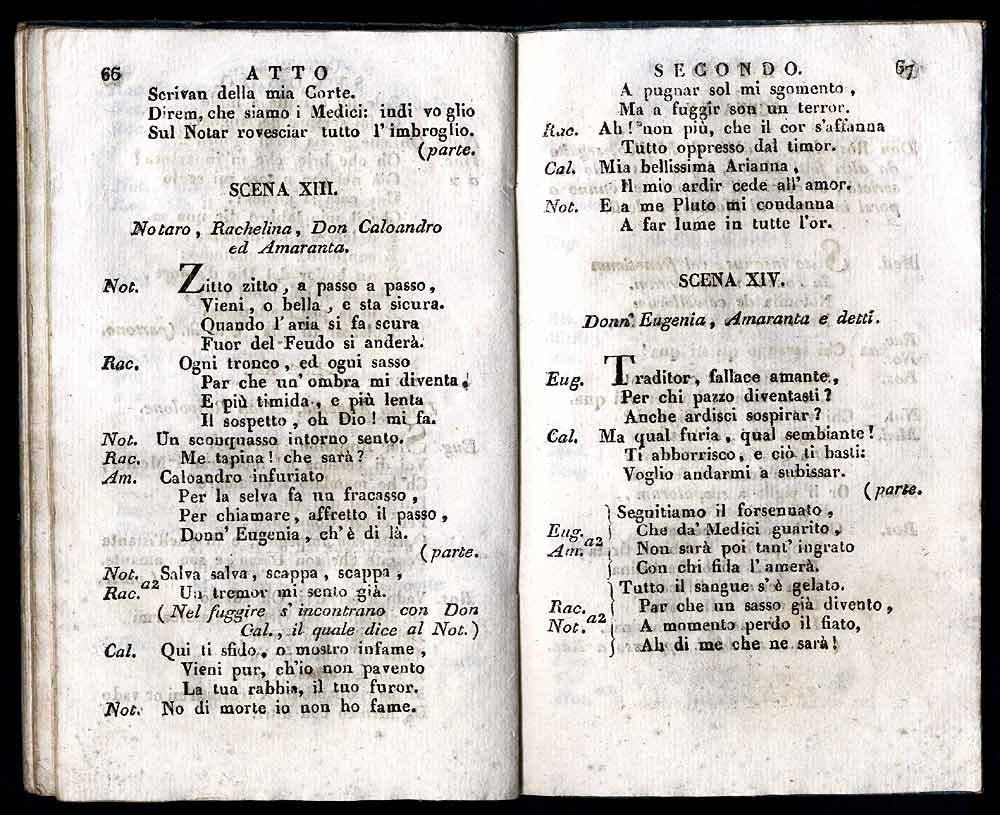 66 ATTO
Scrivan della mia Corte.
Direm, che siamo i Medici: indi voglio
Sul Notar rovesciar tutto l' imbroglio.
(parte.
SCENA XIII.
Notaro, Rachelina, Don Caloandro
ed Amaranta.
Not. Zitto zitto, a passo a passo,
Vieni, o bella, e sta sicura.
Quando l' aria si fa scura
Fuor del Feudo si anderà.
Rac. Ogni tronco, ed ogni sasso
Par che un' ombra mi diventa,
E più timida, e più lenta
Il sospetto, oh Dio! mi fa.
Not. Un sconquasso intorno sento.
Rac. Me tapina! che sarà?
Am. Caloandro infuriato
Per la selva fa un fracasso,
Per chiamare, affretto il passo,
Donn' Eugenia, ch' è di là.
(parte.
Not. Salva salva, scappa, scappa,
Rac. a2 Un tremor mi sento già.
(Nel fuggire s' incontrano con Don
Cal., il quale dice al Not.)
Cal. Qui ti sfido, o mostro infame,
Vieni pur, ch'io non pavento
La tua rabbia, il tuo furor.
Not. No di morte io non ho fame.
SECONDO. 67
A pugnar sol mi sgomento,
Ma a fuggir son un terror.
Rac. Ah! non più, che il cor s'affanna
Tutto oppresso dal timor.
Cal. Mia bellissima Arianna,
Il mio ardir cede all' amor.
Not. E a me Pluto mi condanna
A far lume in tutte l'or.
SCENA XIV.
Donn' Eugenia, Amaranta e detti.
Eug. Traditor, fallace amante,
Per chi pazzo diventasti?
Anche ardisci sospirar?
Cal. Ma qual furia, qual sembiante!
Ti abborrisco, e ciò ti basti:
Voglio andarmi a subissar.
(parte.
Seguitiamo il forsennato,
Eug. Che da' Medici guarito,
Am. a2 Non sarà poi tant' ingrato
Con chi fida l' amerà.
Tutto il sangue s' è gelato.
Rac. Par che un sasso già divento,
Not. a2 A momento perdo il fiato,
Ah di me che ne sarà!